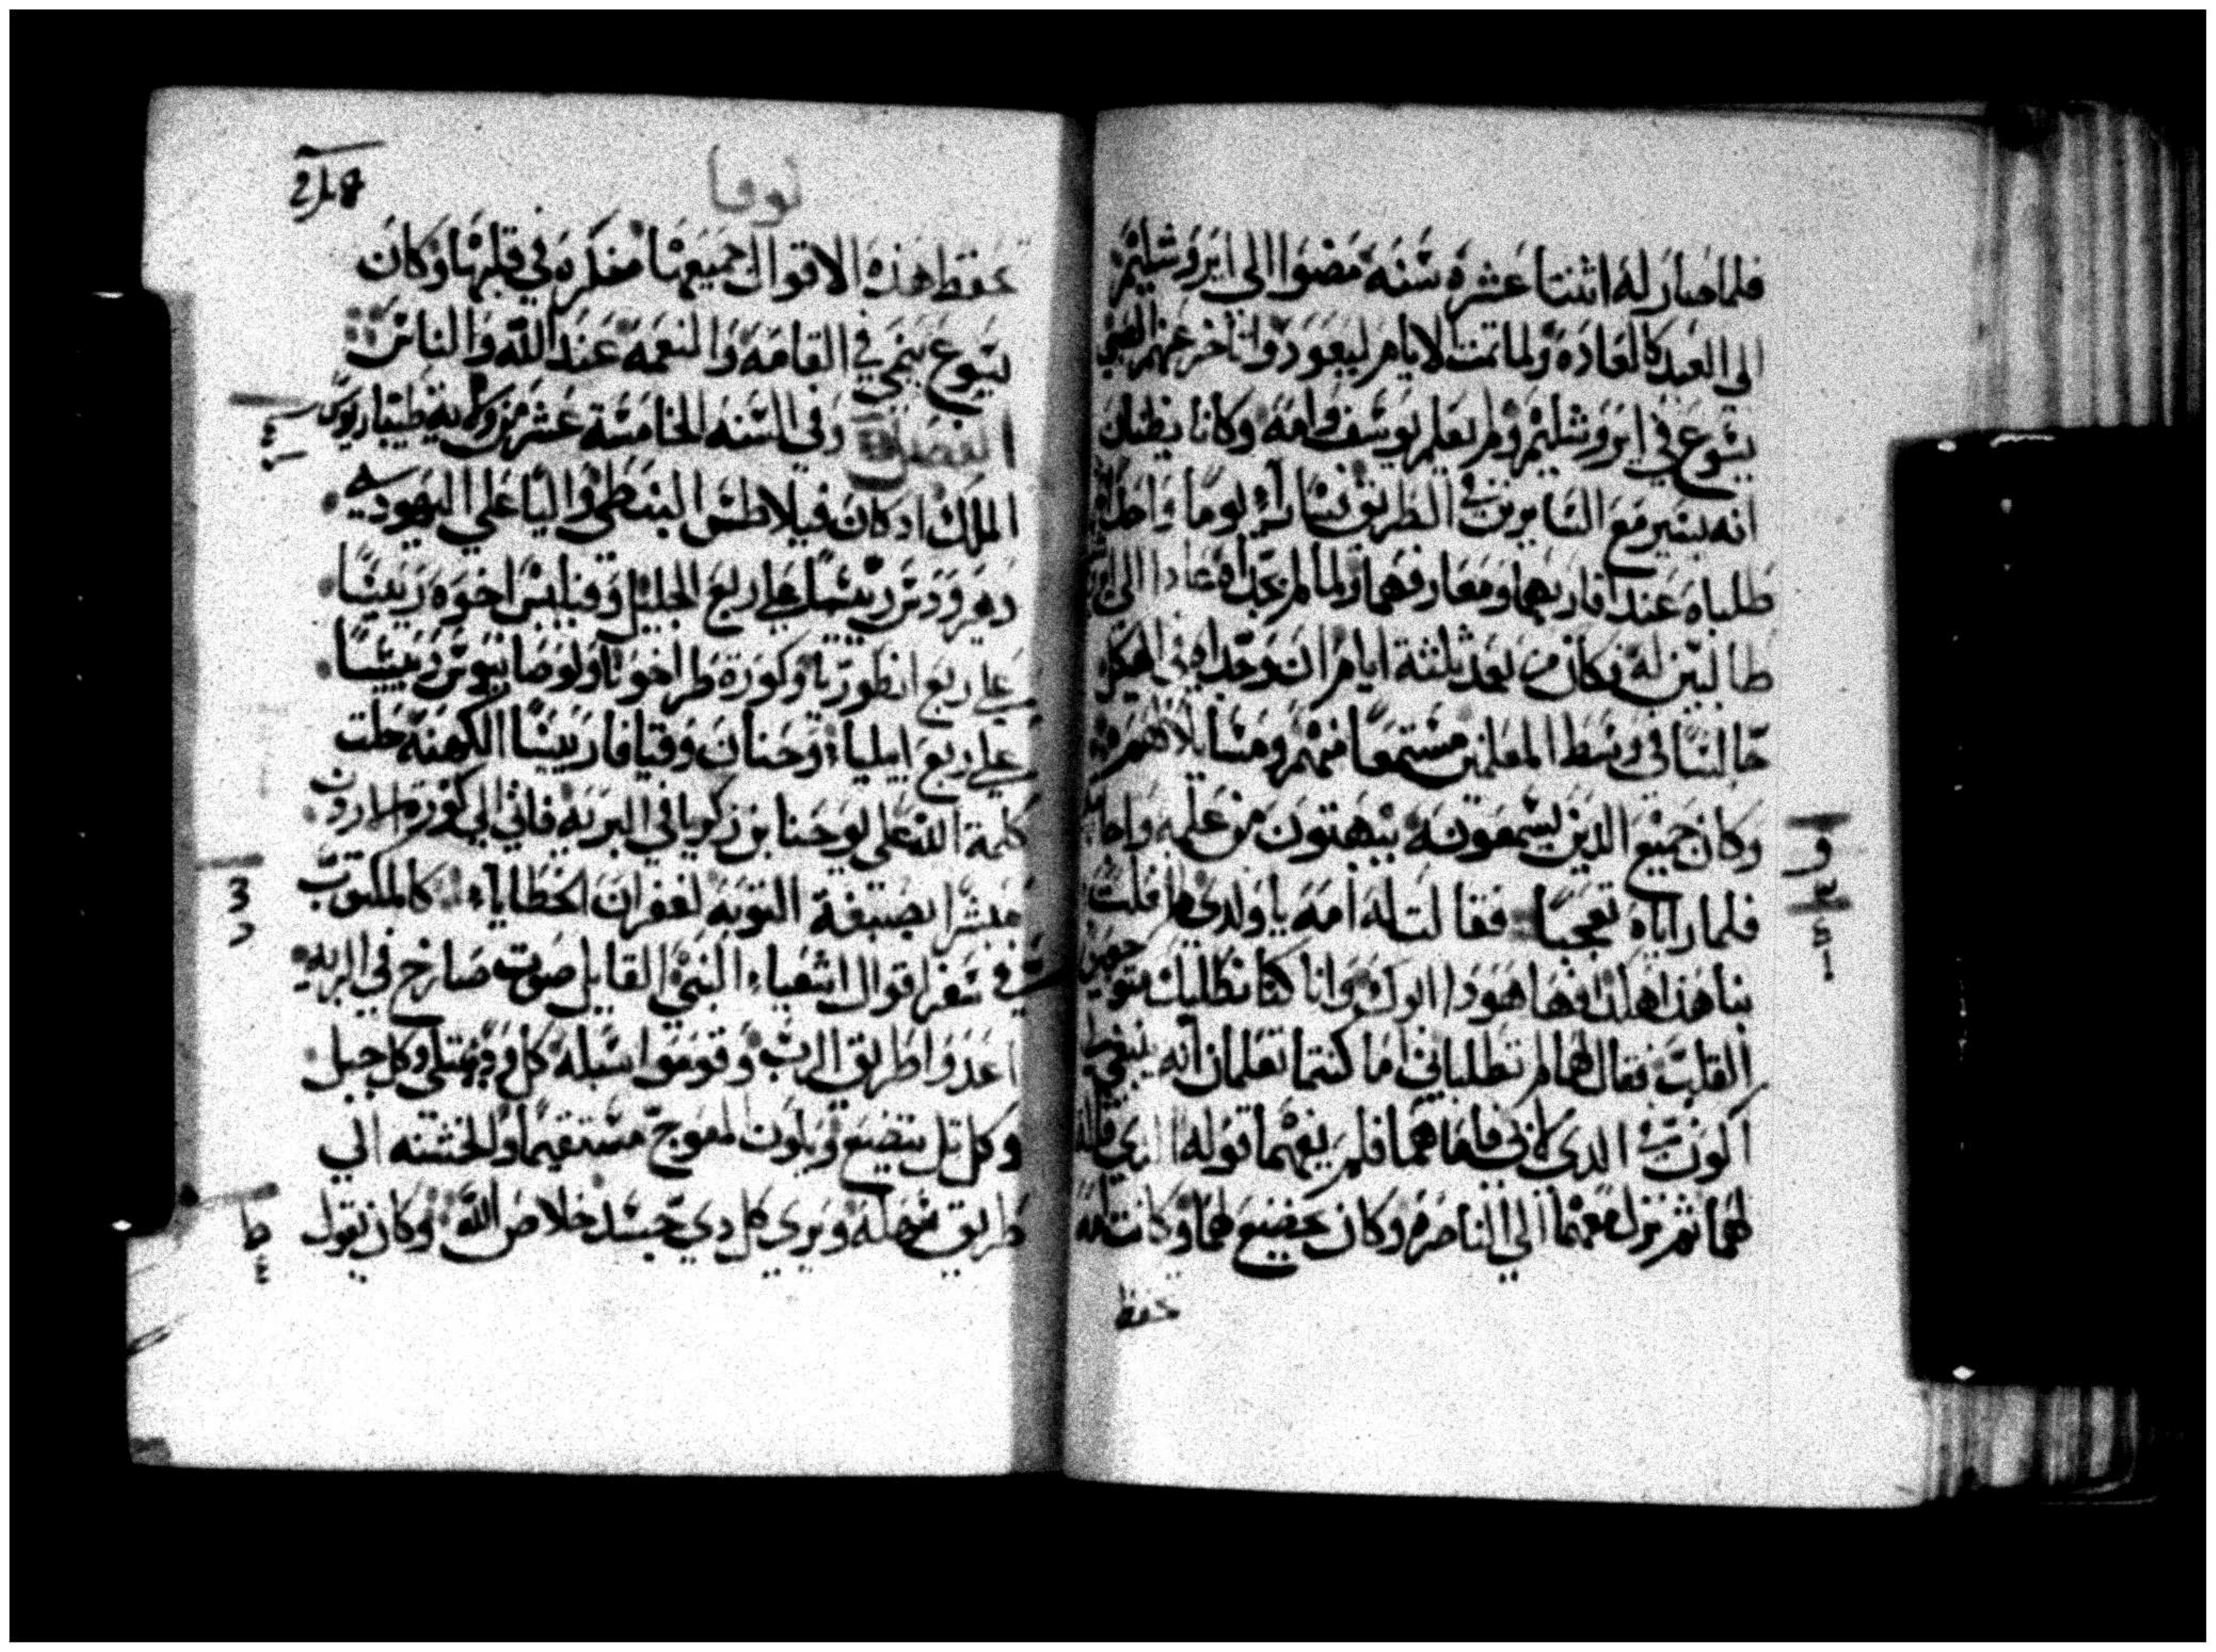 فلما صار له اثنتا عشره سنه مضوا الى ايروشليم
الى العيد كالعاده ولما تمت الايام ليعودوا تاخر عنهم الصبي
يسوع في ايروشليم ولم يعلم يوسف وامه وكانا يظنان
انه يسير مع السايرين في الطريق يوما واحدا
طلباه عند اقاربهما ومعارفهما ولما لم يجداه عادا الى
طالبين له فكان من بعد ثلثة ايام ان وجداه في الهيكل
جالسا في وسط المعلمين مستمعا منهم ومسايلا لهم
وكان جميع الدين يسمعونه ينبهتون من علمه
فلما راياه تعجبا فقالت له امه يا ولدى لم فعلت
بنا هذا هكذا وها هودا ابوك وانا كنا نطلبك بتوجع
القلب فقال لهما لم تطلباني اما كنتما تعلمان انه ينبغي
اكون في الدى لابي فاما هما فلم يفهما قوله الدي قاله
لهما ثم نزل معهما الي الناصره وكان يخضع لهما وكانت امه
حفظ
لوقا
تحفظ هذه الاقوال جميعها مفكره في قلبها وكان
يسوع ينمي في القامه والنعمه عند الله والناس
الفصل وفي السنه الخامسة عشر من ولاية طيباريوس
الملك اد كان فيلاطس البنطي واليا علي اليهوديه
وهيرودس رييسا علي ربع الجليل وفيلبس اخوه رييسا
علي ربع انطوريا وكورة طراخونا ولوصانيوس رييسا
علي ربع ايليا وحنان وقيافا رييسا الكهنه حلت
كلمة الله على يوحنا بن زكريا في البريه فاتي الي كورة الاردن
مبشرا بصبغة التوبه لغفران الخطايا كالمكتوب
في سفر اقوال اشعياء النبي القايل صوت صارخ في البريه
اعدوا طريق الرب وقوموا سبله كل وادٍ يمتلي وكل جبل
وكل تل يتضع ويكون المعوج مستقيما والخشنه الي
طريق سهله ويري كل دي جسد خلاص الله وكان يقول